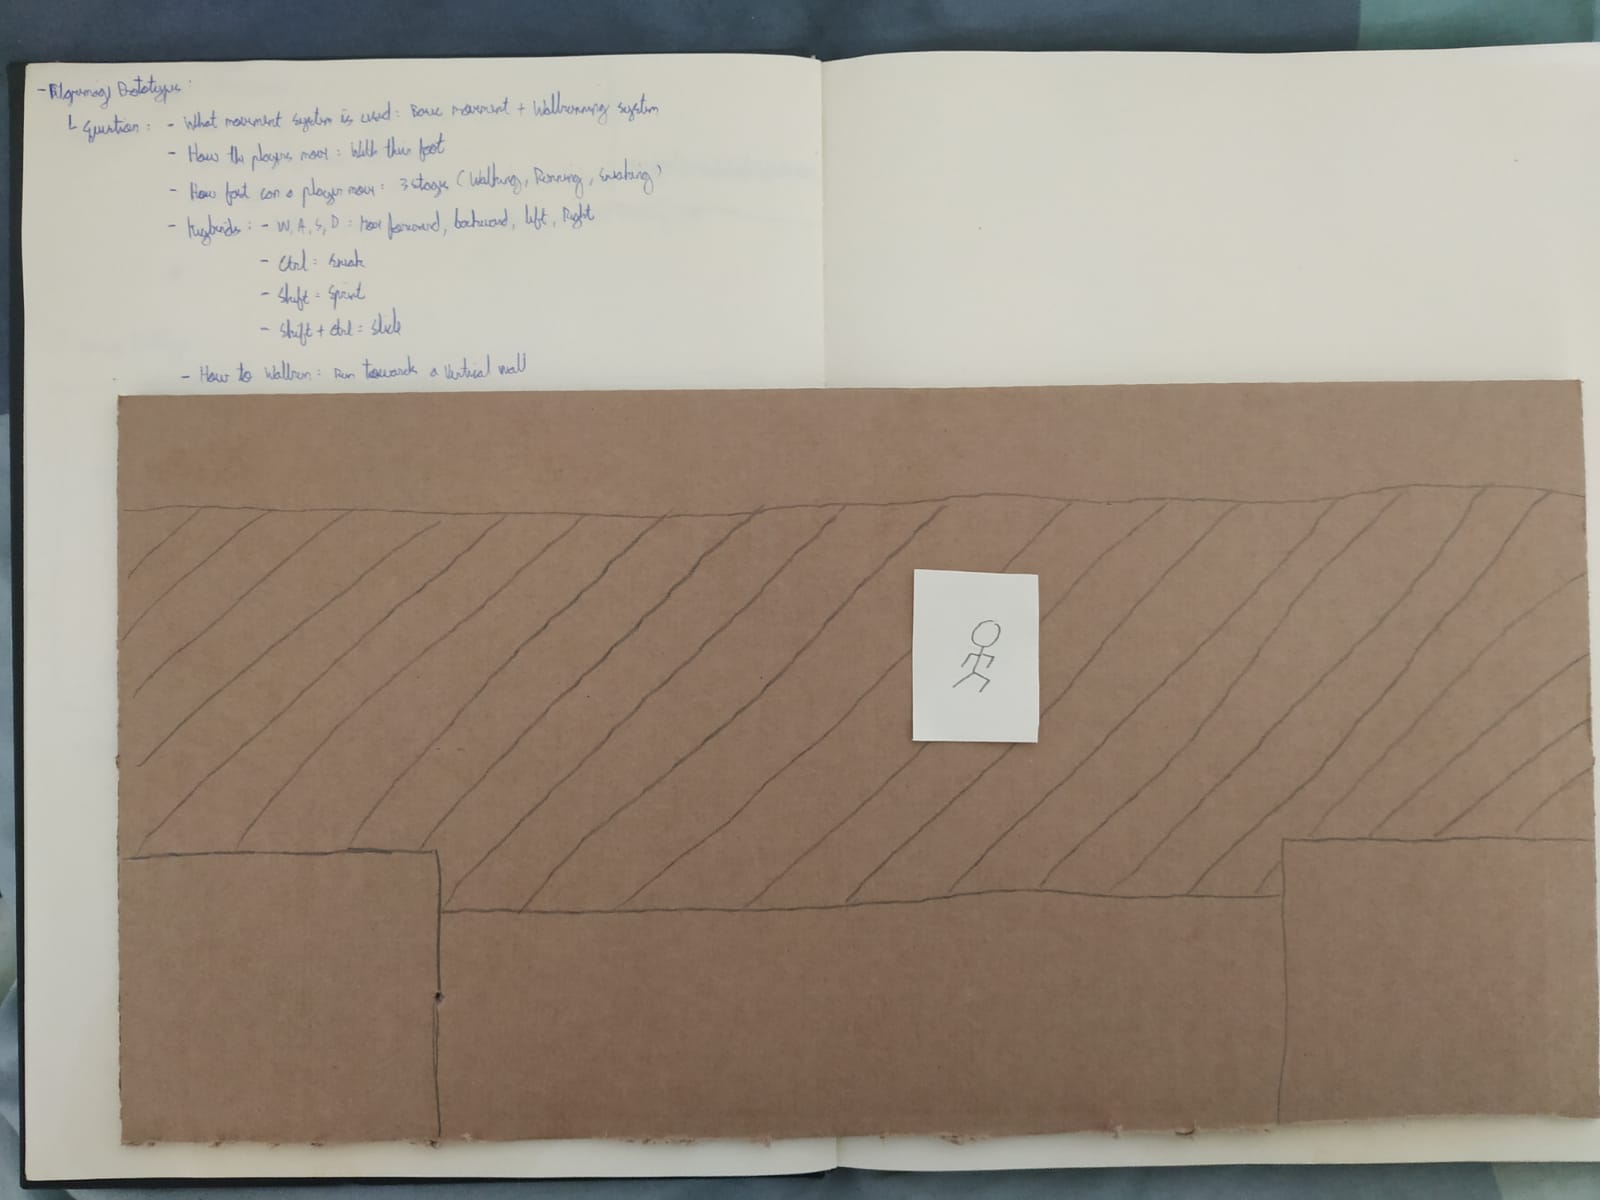 - Pilgrimage Prototype:
Question: - What movement system is used: Basic movement + Wallrunning system
- How the players move: With their foot
- How fast can a player move: 3 stages (Walking, Running, Sneaking)
- Keybinds: - W, A, S, D: Move forward, backward, left, Right
- Ctrl: Sneak
- Shift: Sprint
- Shift + Ctrl: Slide
- How to Wallrun: Run towards a vertical wall